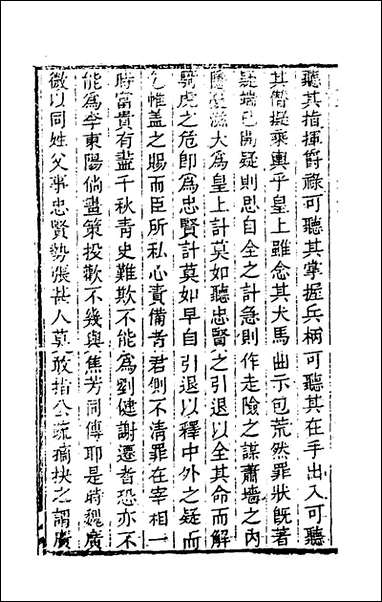 聽其指揮爵祿可聽其掌握兵柄可聽其在手出入可聽
其僭擬乘輿乎皇上雖念其犬馬曲示包荒然罪狀既著
疑端已開疑則思自全之計急則作走險之謀蕭墻之內
隱憂滋大為皇上計莫如聽忠賢之引退以全其命而解
騎虎之危即為忠賢計莫如早自引退以釋中外之疑而
乞惟盖之賜而臣所私心責備者君側不清罪在宰相一
時富貴有盡千秋青史難欺不能為劉健謝遷者恐亦不
能為李東陽倘盡策投歡不幾與焦芳同傳耶是時魏廣
微以同姓父事忠賢勢張甚人莫敢指公疏摘抉之謂廣